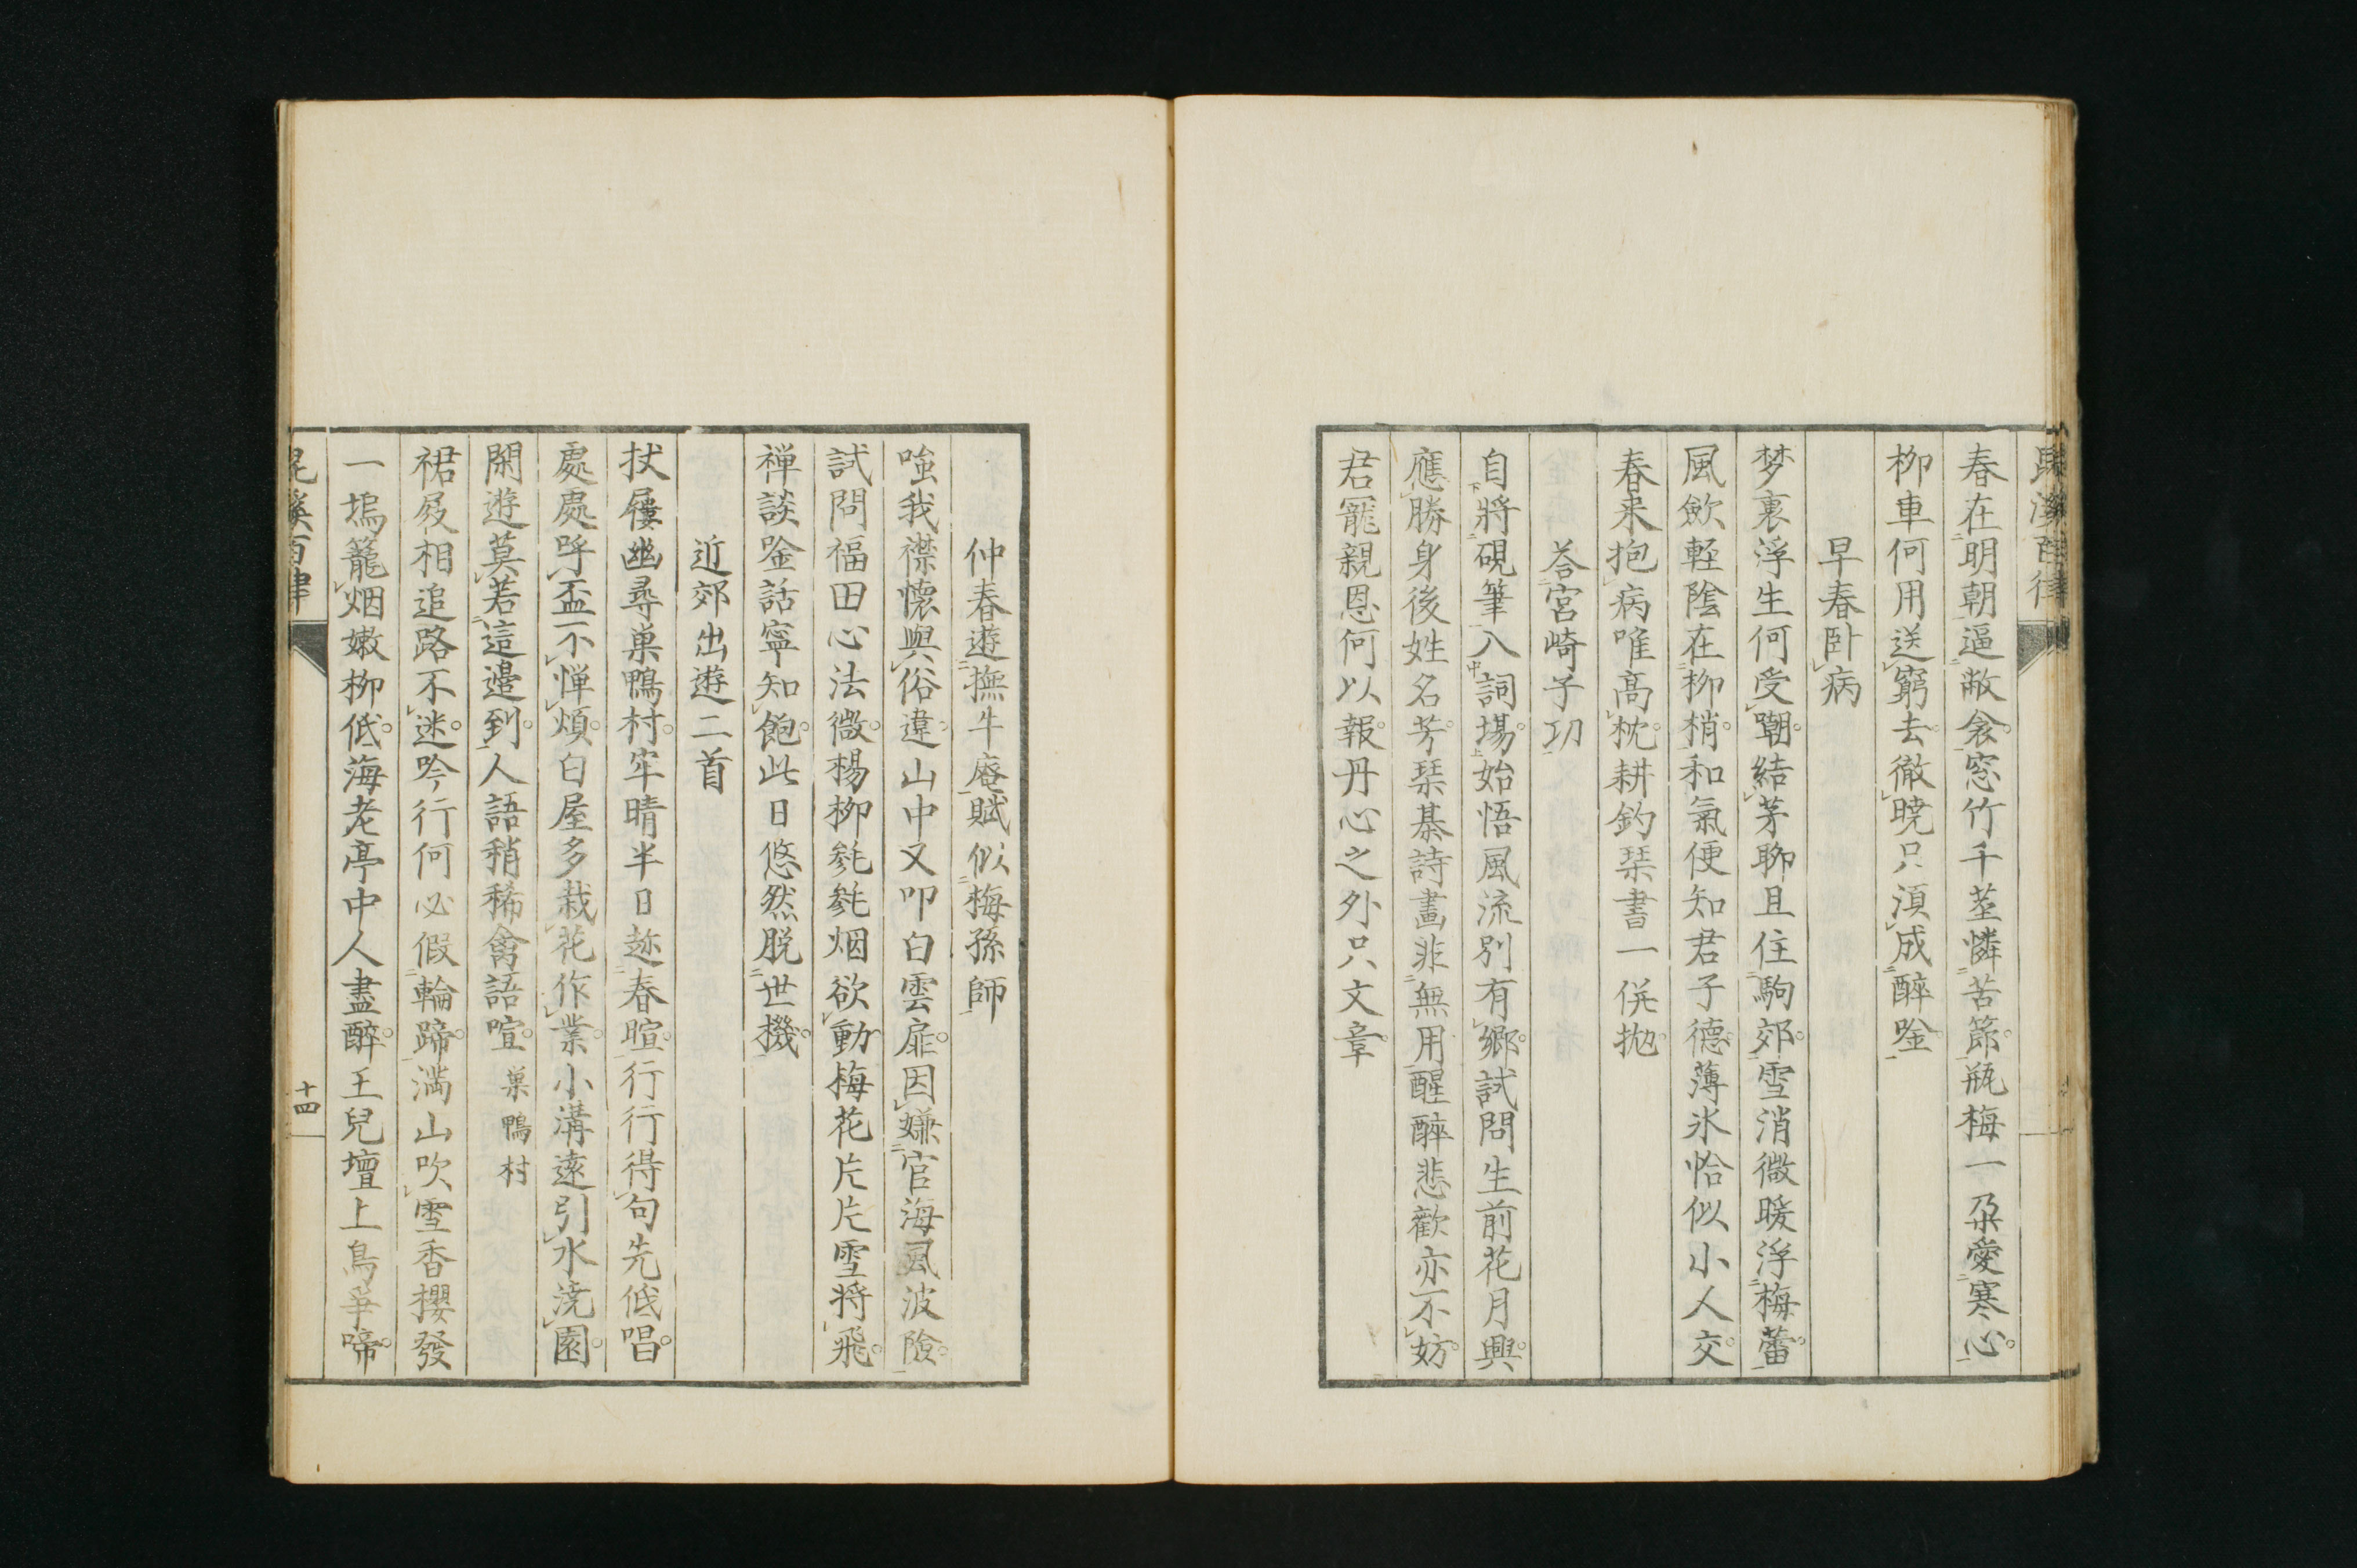 春在明朝逼敝衾窓竹千茎憐苦節瓶梅一朶愛寒心
柳車何用送窮去徹暁只須成醉唫
早春卧病
梦裏浮生何受嘲結茅聊且住駒郊雪消微暖浮梅蕾
風歛軽陰在柳梢和氣便知君子德薄氷恰似小人交
春来抱病唯髙枕耕釣琹書一併抛
荅宮崎子功
自將硯筆入詞場始悟風流別有郷試問生前花月興
應勝身後姓名芳琹棊詩畫非無用醒醉悲歡亦不妨
君寵親恩何以報丹心之外只文章
仲春遊撫牛庵賦似梅孫師
嗤我襟懐與俗違山中又叩白雲扉因嫌官海風波險
試問福田心法微楊柳毿毿烟欲動梅花片片雪将飛
禅談唫話寧知飽此日悠然脱世機
近郊出遊二首
扙屨幽尋巣鴨村牢晴半日趂春暄行行得句先低唱
處處呼盃不惮煩白屋多栽花作業小溝遠引水澆園
閑遊莫若這邉到人語稍稀禽語喧 巣鴨村
裙屐相追路不迷吟行何必假輪蹄満山吹雪香攖發
一塢籠烟嫩柳低海老亭中人盡醉王兒壇上鳥爭啼
百律
十四